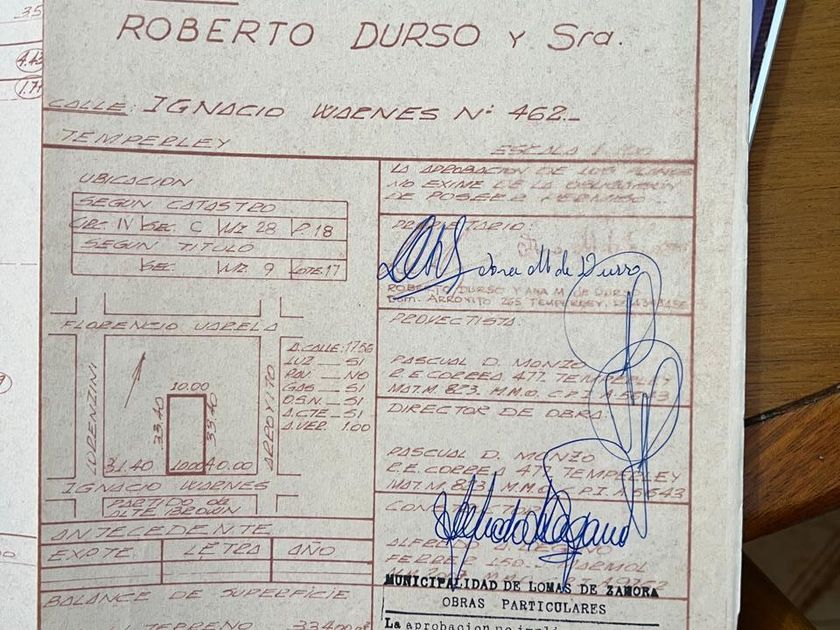 35
4.43
1.7
ROBERTO DURSO Y Sra.
CALLE: IGNACIO WARNES Nº 462_
TEMPERLEY
ESCALA 1:100
UBICACION
SEGUN CATASTRO
CIRC. IV SEC. C MZ 28 P. 18
SEGUN TITULO
SEC. MZ. 9 LOTE 17
FLORENCIO VARELA
LORENZINI
ARROYITO
10.00
33.40
33.40
31.40
10.00
40.00
IGNACIO WARNES
PARTIDO de
ALTE BROWN
A.CALLE: 17.56
LUZ __ SI
PAV. __ NO
GAS __ SI
O.S.N. __ SI
A.CTE __ SI
A.VER. 1.00
ANTECEDENTE
EXPTE. LETRA AÑO
BALANCE DE SUPERFICIE
TERRENO 334.00
LA APROBACION DE LOS PLANOS
NO EXIME DE LA OBLIGACION
DE POSEER PERMISO
PROPIETARIO:
Ana M de Durso
ROBERTO DURSO Y ANA M. DE DURSO
Dom. ARROYITO 265 TEMPERLEY
PROYECTISTA:
PASCUAL D. MONZO
R.E. CORREA 477. TEMPERLEY
MAT. M. 823. M.M.O. C.P.I. A 5643
DIRECTOR DE OBRA:
PASCUAL D. MONZO
R.E. CORREA 477 TEMPERLEY
MAT. M 823 M.M.O. C.P.I. A 5643
MUNICIPALIDAD DE LOMAS DE ZAMORA
OBRAS PARTICULARES
La aprobacion no